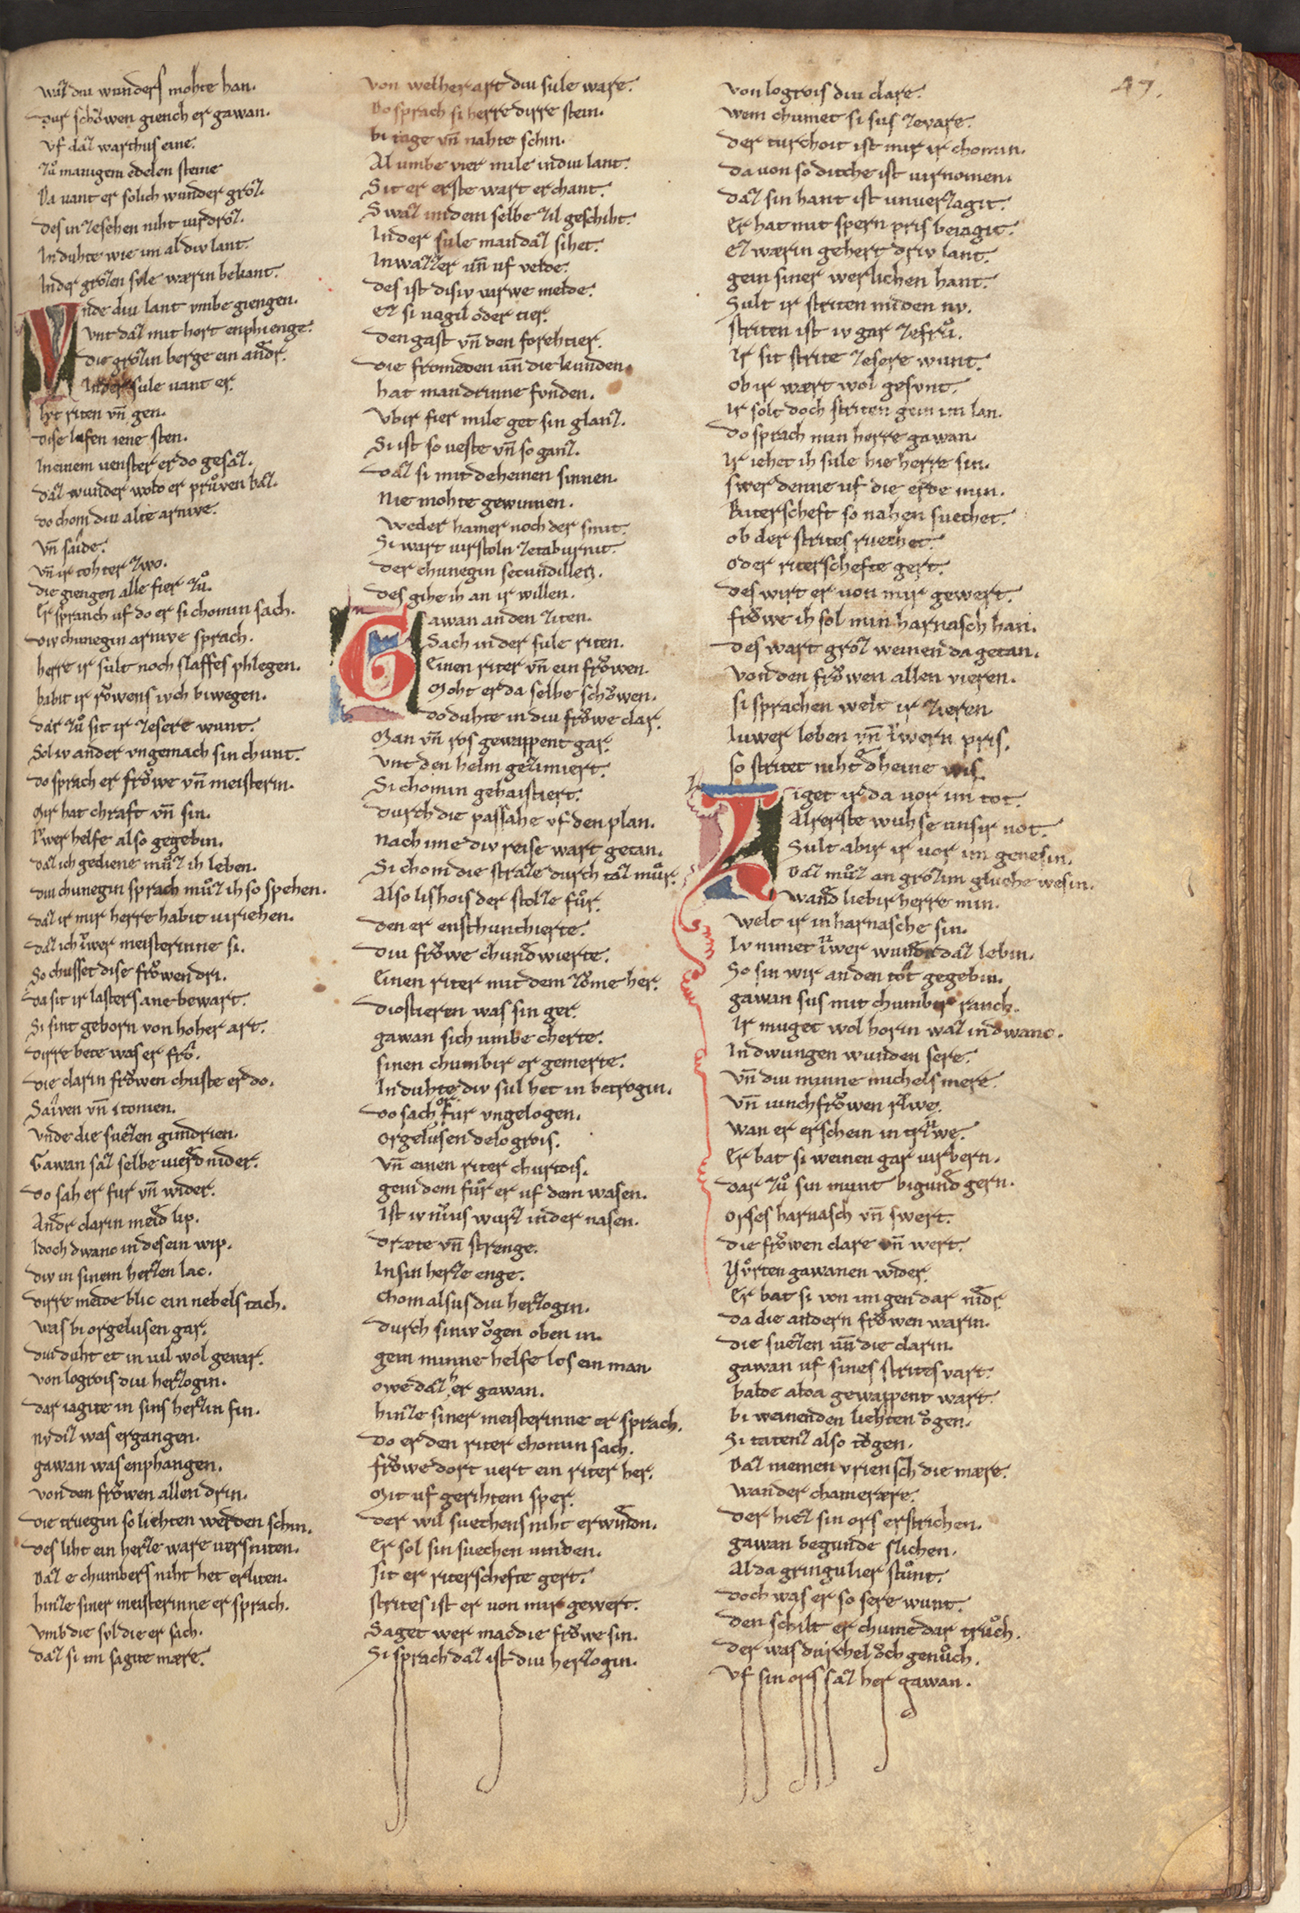 47.
waz diu wunders mohte han.
dur schŏwen giench er gawan.
vf daz warthus eine.
zů manigem edelen steine
Da vant er solich wunder groz.
des in zesehen niht virdroz.
In duhte wie im al div lant
In der grozen svle wærin bekant.
Vnde diu lant vmbe giengen.
vnt daz mit hort enphienge.
die grozin berge ein andr.
In der sule vant er.
liut riten vn̄ gen.
dise lofen iene sten.
In einem venster er do gesaz.
daz wunder wold er průven baz.
do chom diu alte arnive.
vn̄ saide.
vn̄ ir tohter zwo.
die giengen alle fier zů.
Er spranch uf do er si chomin sach.
div chunegin arnive sprach.
herre ir sult noch slaffes phlegen.
habit ir rŏwens ivch biwegen.
dar zů sit ir zesere wunt.
Sol iv ander vngemach sin chunt.
do sprach er frŏwe vn̄ meisterin.
Mir hat chraft vn̄ sin.
iwer helfe also gegebin.
daz ich gediene můz ih leben.
diu chunegin sprach můz ih so spehen.
daz ir mir herre habit viriehen.
daz ich iwer meisterinne si.
So chusset dise frŏwen dri.
da sit ir lasters ane bewart.
Si sint geborn von hoher art.
dirre bete was er frŏ.
die clarin frŏwen chuste er do.
Saiven vn̄ itonien.
vnde die suezen gundrien.
Gawan saz selbe vierd nider.
do sah er fur vn̄ wider.
Andr clarin meid lip.
Idoch dwanc in des ein wip.
div in sinem herzen lac.
dirre meide blic ein nebels tach.
was bi orgelusen gar.
diu duht et in vil wol gevar.
von logrois diu herzogin.
dar iagite in sins herzin sin.
nv diz was ergangen.
gawan was enphangen.
von den frŏwen allen drin.
die truegin so liehten werden schin.
des liht ein herze ware versniten.
daz e chumbers niht het erliten.
hinze siner meisterinne er sprach.
vmb die svl die er sach.
daz si im sagite mære.
von welher art diu sule ware.
Do sprach si herre dirre stein.
bi tage vn̄ nahte schin.
Al umbe vier mile in diu lant.
Sit er erste wart erchant.
Swaz in dem selbe zil geschiht.
In der sule man daz sihet.
In wazzer vn̄ uf velde.
des ist disiv virwe melde.
ez si vogil oder tier.
den gast vn̄ den forehtier.
die fromeden vn̄ die kunden.
hat man drinne funden.
vbir fier mile get sin glanz.
Si ist so veste vn̄ so ganz.
daz si mit deheinen sinnen.
Nie mohte gewinnen.
weder hamer noch der smit.
Si wart virstoln zetaburnit.
der chunegin secundillen.
des gihe ih an ir willen.
Gawan an den ziten.
Sach in der sule riten.
Einen riter vn̄ ein frŏwen.
Moht er da selbe schŏwen.
do duhte in diu frŏwe clar.
Man vn̄ ros gewappent gar.
vnt den helm gezimiert.
Si chomin gehaistiert.
durch die passahe vf den plan.
nach ime div reise wart getan.
Si chom die straze durch taz můr.
Also lishois der stolze fůr.
den er enschunchierte.
diu frŏwe chundwierte.
Einen riter mit dem zŏme her.
diostieren was sin ger.
gawan sich umbe cherte.
sinen chumbir er gemerte.
In duhte div sul het in betrogin.
do sach er fur vngelogen.
orgelusen delogrois.
vn̄ einen riter churtois.
gein dem fůr er uf dem wasen.
Ist iv niůs wurz in der nasen.
dræte vn̄ strenge.
In sin herze enge.
chom alsus diu herzogin.
durch siniv ŏgen oben in.
gein minne helfe los ein man
owe daz her gawan.
hinze siner meisterinne er sprach.
do er den riter chomin sach.
frŏwe dort vert ein riter her.
Mit uf gerihtem sper.
der wil suechens niht erwindn.
Er sol sin suechen vinden.
sit er riterschefte gert.
strites ist er von mir gewert.
Saget wer mac die frŏwe sin.
Si sprach daz ist diu herzogin.
von logrois diu clare.
wem chumet si sus zevare.
der turchoit ist mit ir chomin.
da von so ditche ist virnomen.
daz sin hant ist unverzagit.
Er hat mit spern pris beiagit.
Ez wærin gehert driv lant.
gein siner werlichen hant.
Sult ir striten miden nv.
striten ist iv gar zefrů.
Ir sit strite zesere wunt.
ob ir wært wol gesvnt.
ir solt doch striten gein im lan.
do sprach min herre gawan.
Ir iehet ih sule hie herre sin.
swer denne uf die erde min.
Riterscheft so nahen suechet.
ob der strites ruechet.
oder riterschefte gert.
des wirt er von mir gewert.
frŏwe ih sol min harnasch han.
des wart groz weinen da getan.
Von den frŏwen allen vieren.
si sprachen welt ir zieren
Iuwer leben vn̄ iwern pris.
so stritet niht dheine wis.
Liget ir da vor im tot.
Alrerste wuhse unsir not.
Sult abir ir vor im genesin.
Daz můz an grozim gluche wesin.
wand liebir herre min.
welt ir in harnasche sin.
Iv nimet iwer wunden daz lebin.
So sin wir an den tot gegebin.
gawan sus mit chumber ranch.
Ir muget wol horin waz in dwanc.
In dwungen wunden sere.
vn̄ diu minne michels mere.
vn̄ iunchfrŏwen riwe.
wan er erschein in triwe.
Er bat si weinen gar virbern.
dar zů sin munt bigund gern.
orses harnasch vn̄ swert.
die frŏwen clare vn̄ wert.
Fůrten gawanen wider.
Er bat si von im gen dar nidr.
da die andern frŏwen warin.
die suezen vn̄ die clarin.
gawan uf sines strites vart.
balde alda gewappent wart.
bi weinenden liehten ŏgen.
Si tatenz also tŏgen.
Daz niemen vriensch die mære.
wan der chamerære.
der hiez sin ors erstrichen.
gawan begunde slichen.
Al da gringulier stůnt.
doch was er so sere wunt.
den schilt er chume dar trůch.
der was durchel ŏch genůch.
Vf sin ors saz her gawan.